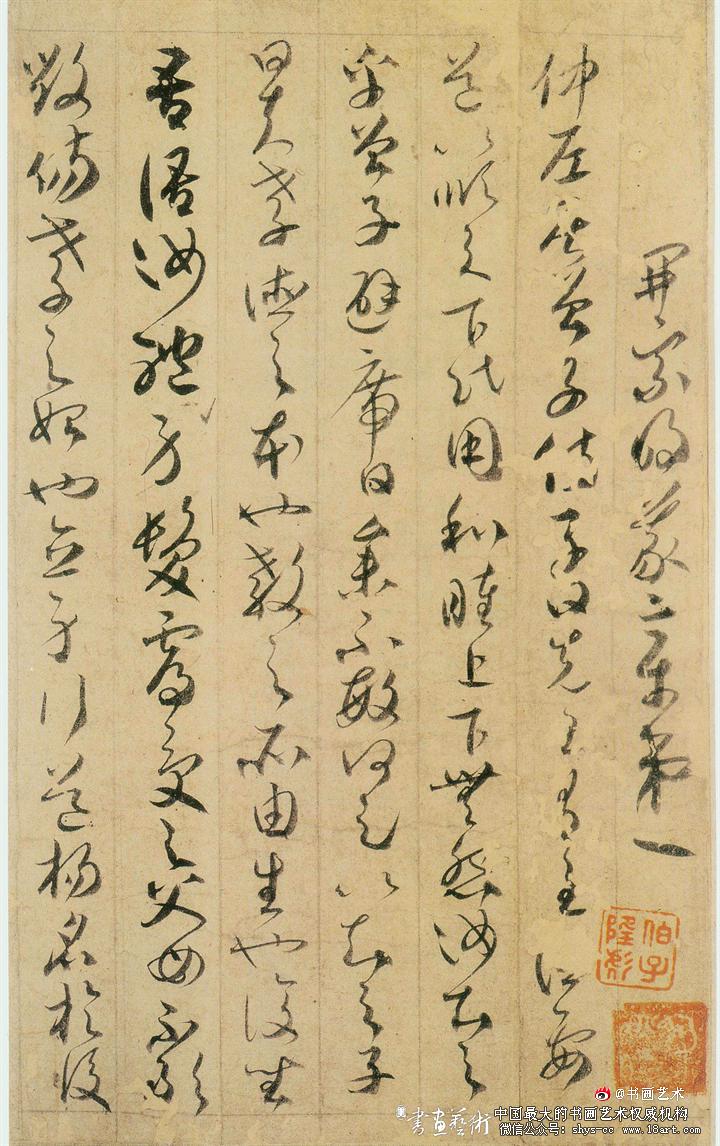 開宗明義章第一
仲尼居曾子侍子曰先王有至德要
道以順天下民用和睦上下無怨汝知之
乎曾子避席曰參不敏何足以知之子
曰夫孝德之本也教之所由生也復坐
吾語汝體身髮膚受之父母不敢
毀傷孝之始也立身行道揚名於後
@书画艺术
書畫藝術
中国最大的书画艺术权威机构
微信公众号: shys-cc www.18art.com